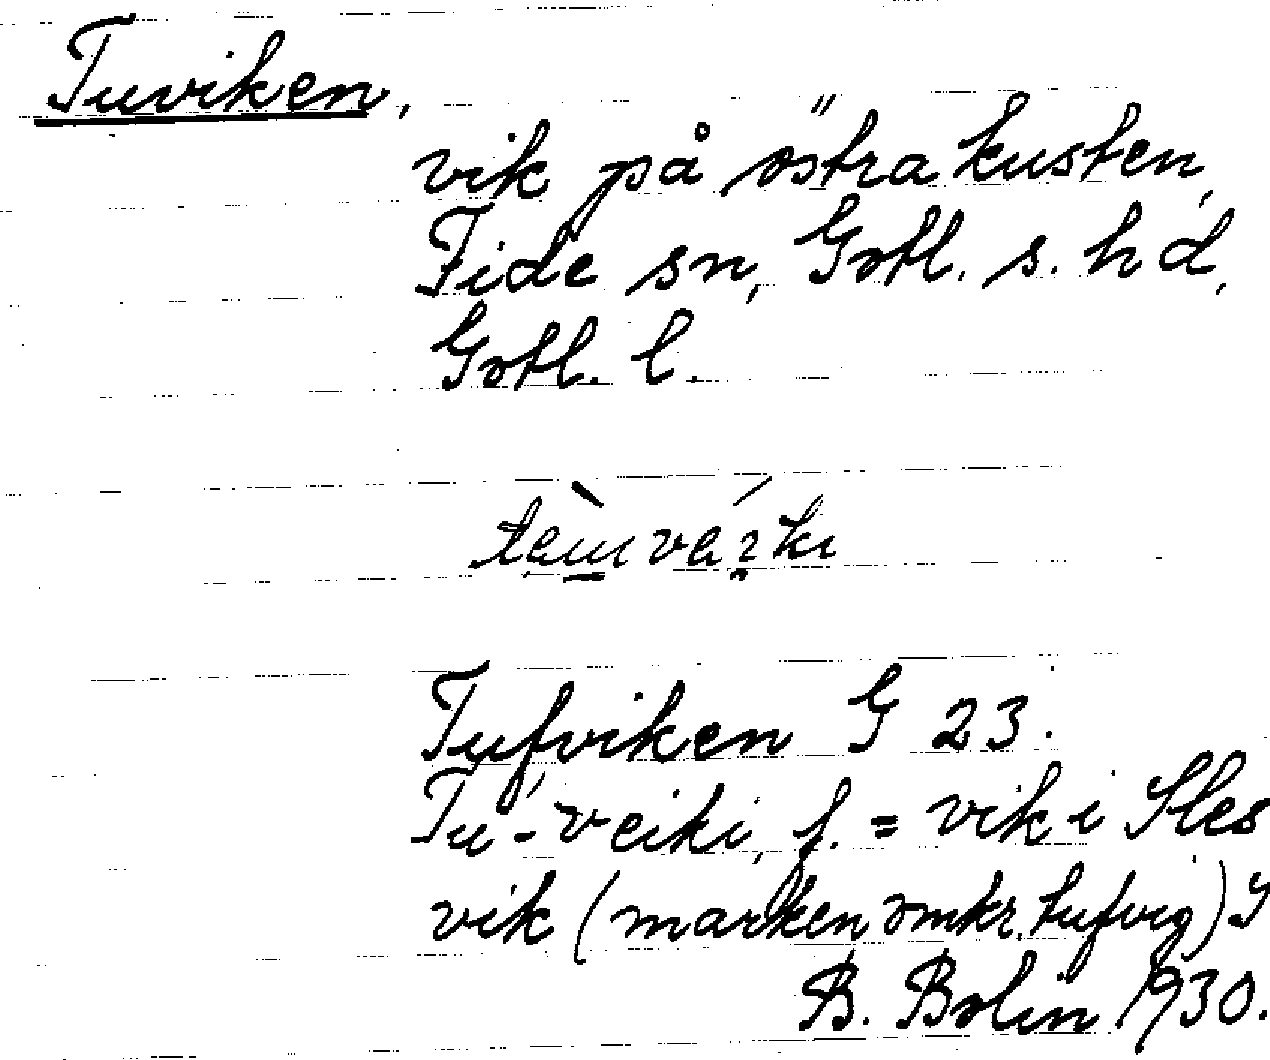 Tuviken,
vik på östra kusten,
Fide sn, Gotl. s. hd,
Gotl. l.
Tufviken G 23.
Tu-veiki, f. = vik i Sles
vik (marken omkr. tufvig) S
B. Bolin 1930.